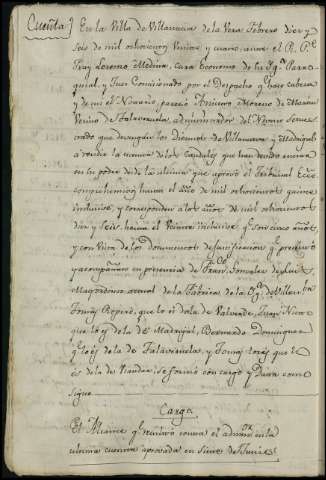 Cuenta} En la Villa de Villanueva de la Vera Febrero diez y
seis de mil ochocientos Veinte y cuatro, ante el R. P.e
Fray Lorenzo Medina, cura Economo de la Yg.a Parro
quial, y Juez Comisionado por el Despacho q.e hace cabeza
y de mi el Notario, parecio Antonio Moreno de
Vecino de Talaveruela, administrador del Noveno
que devengan los Diezmos de Villanueva y Madrigal
a rendir la cuenta de los Caudales que han devido entrar
en su poder desde la ultima que aprobó el tribunal Ecle
comprehensiva hasta el año de mil ochocientos quince
inclusive, y corresponden a los años de mil ochocientos
diez y Seis, hasta el Veinte inclusive q.e son cinco años,
y con vista de los documentos de justificacion q.e presentó
y acompañan en presencia de Fran.co Gonzalez de
Mayordomo actual de la Fabrica de la Yg.a de Villan.va
Tomas Ropero, que lo es de la de Valverde, Juan
que lo es de la de Madrigal, Bernardo Dominguez
q.e lo es de la de Talaveruela, y Tomas q.e lo
es de la de Viandar, se formó con cargo y Data como
sigue
Cargo
El Alcance q.e resultó contra el admor. en la
ultima cuenta aprovada en siete de Junio